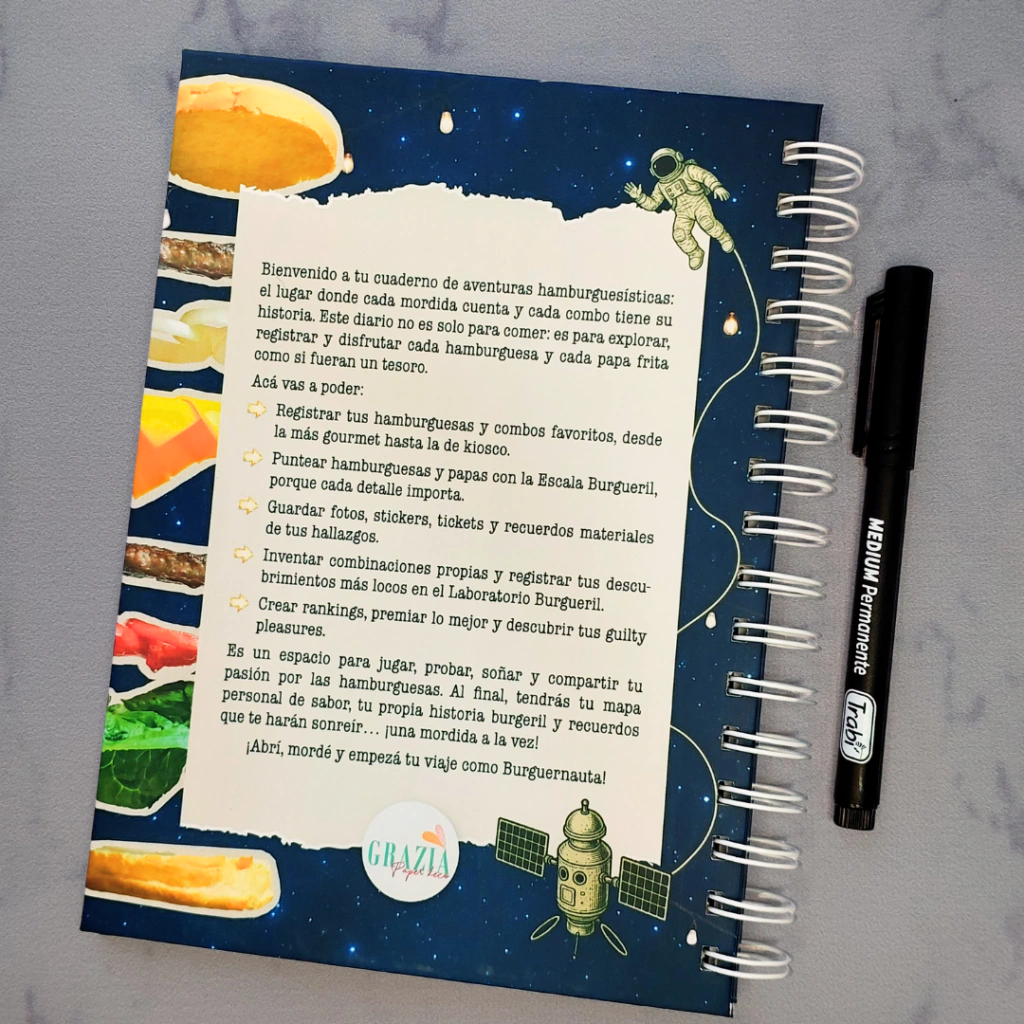 Bienvenido a tu cuaderno de aventuras hamburguesísticas:
el lugar donde cada mordida cuenta y cada combo tiene su
historia. Este diario no es solo para comer: es para explorar,
registrar y disfrutar cada hamburguesa y cada papa frita
como si fueran un tesoro.
Acá vas a poder:
Registrar tus hamburguesas y combos favoritos, desde
la más gourmet hasta la de kiosco.
Puntear hamburguesas y papas con la Escala Burgueril,
porque cada detalle importa.
Guardar fotos, stickers, tickets y recuerdos materiales
de tus hallazgos.
Inventar combinaciones propias y registrar tus descu-
brimientos más locos en el Laboratorio Burgueril.
Crear rankings, premiar lo mejor y descubrir tus guilty
pleasures.
Es un espacio para jugar, probar, soñar y compartir tu
pasión por las hamburguesas. Al final, tendrás tu mapa
personal de sabor, tu propia historia burgeril y recuerdos
que te harán sonreír… ¡una mordida a la vez!
¡Abrí, mordé y empezá tu viaje como Burguernauta!
GRAZIA
Papel deco
MEDIUM Permanente
Trabi